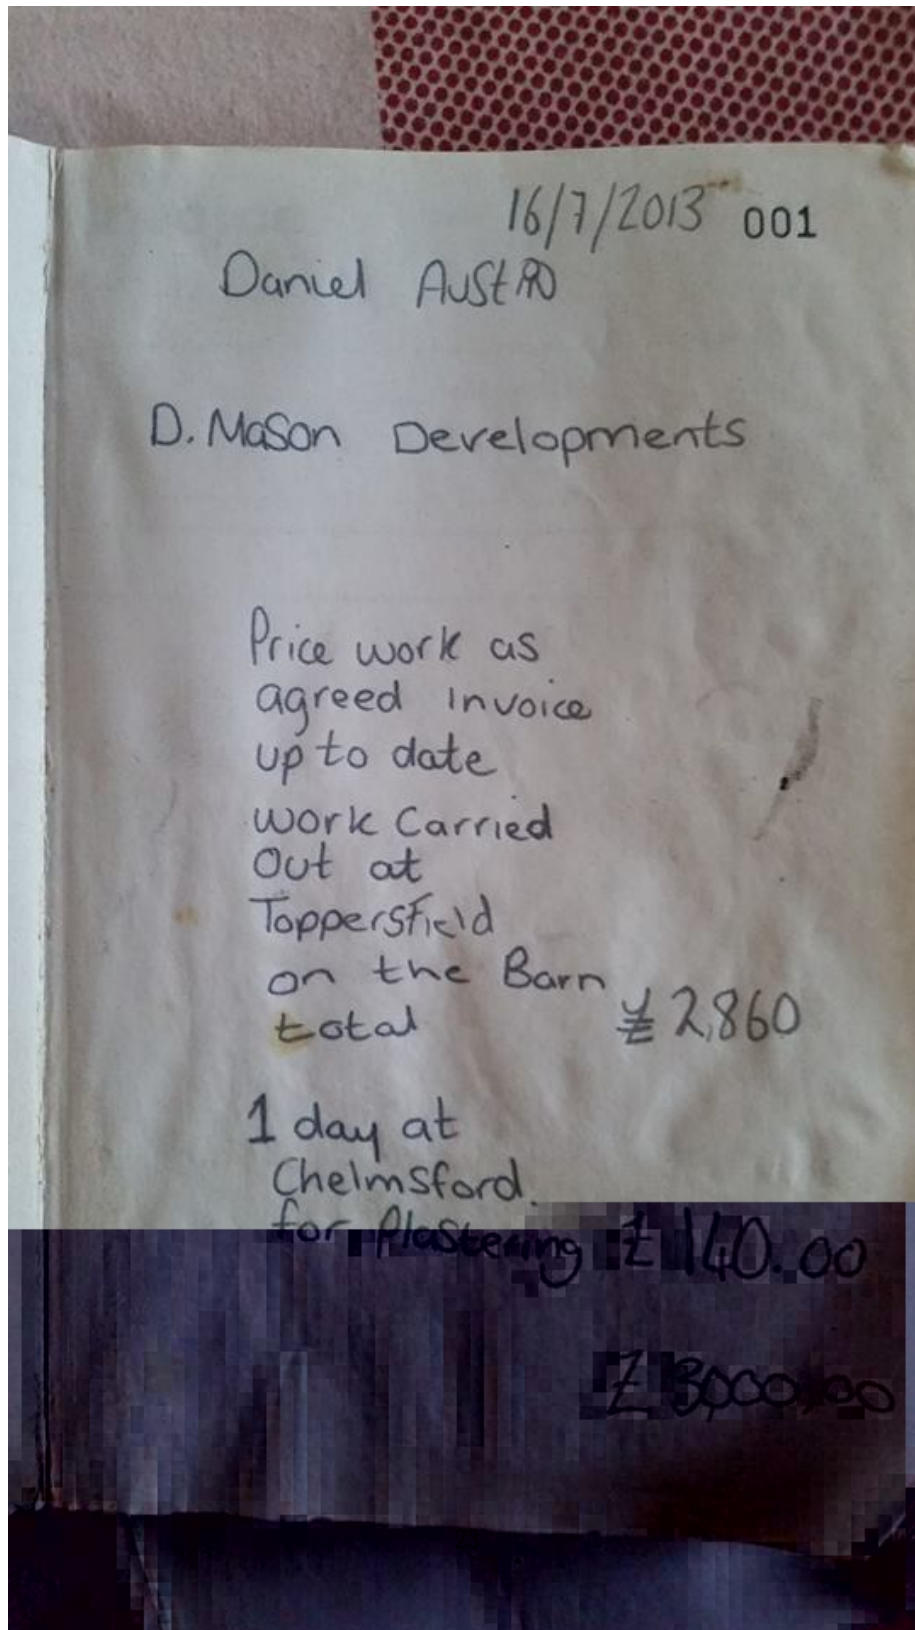 16/7/2013 001
Daniel Austin
D. Mason Developments
Price work as
agreed invoice
up to date
work Carried
Out at
Toppersfield
on the Barn
total £2,860
1 day at
Chelmsford.
for Plastering £140.00
£3,000.00